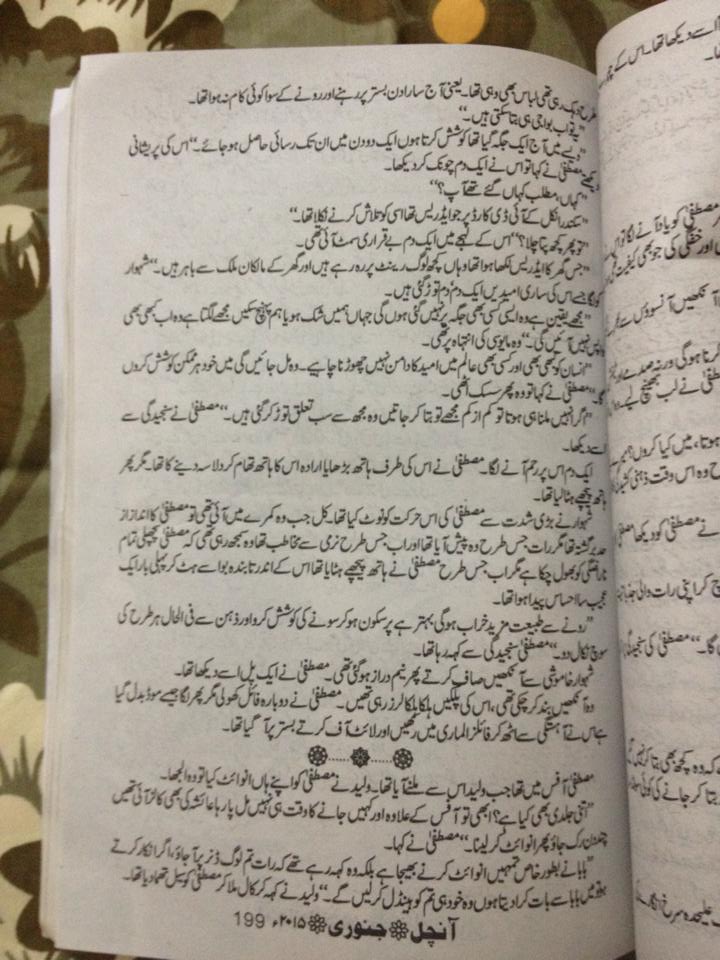 طرح دہک رہی تھی لباس بھی وہی تھا۔ یعنی آج سارا دن بستر پر رہنے اور رونے کے سوا کوئی کام نہ ہوا تھا۔
”یہ تو اب بوا جی ہی بتا سکتی ہیں۔“
”ویسے میں آج ایک جگہ گیا تھا کوشش کرتا ہوں ایک دو دن میں ان تک رسائی حاصل ہو جائے۔“ اس کی پریشانی
دیکھتے مصطفیٰ نے کہا تو اس نے ایک دم چونک کر دیکھا۔
”کہاں، مطلب کہاں گئے تھے آپ؟“
”سکندر انکل کے آئی ڈی کارڈ پر جو ایڈریس تھا اسی کو تلاش کرنے نکلا تھا۔“
”تو پھر کچھ پتا چلا؟“ اس کے لہجے میں ایک دم بے قراری سمٹ آئی تھی۔
”جس گھر کا ایڈریس لکھا ہوا تھا وہاں کچھ لوگ رینٹ پر رہ رہے ہیں اور گھر کے مالکان ملک سے باہر ہیں۔“ شہوار
کو لگا جیسے اس کی ساری امیدیں ایک دم دم توڑ گئی ہیں۔
”مجھے یقین ہے وہ ایسی کسی بھی جگہ پر نہیں گئی ہوں گی جہاں ہمیں شک ہو یا ہم پہنچ سکیں مجھے لگتا ہے وہ اب کبھی بھی
واپس نہیں آئیں گی۔“ وہ مایوسی کی انتہاء پر تھی۔
”انسان کو کبھی بھی اور کسی بھی عالم میں امید کا دامن نہیں چھوڑنا چاہیے۔ وہ مل جائیں گی میں خود ہر ممکن کوشش کروں
گا۔“ مصطفیٰ نے کہا تو وہ پھر سسک اٹھی۔
”اگر انہیں ملنا ہی ہوتا تو کم از کم مجھے تو بتا کر جاتیں وہ مجھ سے سب تعلق توڑ کر گئی ہیں۔“ مصطفیٰ نے سنجیدگی سے
اسے دیکھا۔
ایک دم اس پر رحم آنے لگا۔ مصطفیٰ نے اس کی طرف ہاتھ بڑھایا ارادہ اس کا ہاتھ تھام کر دلاسہ دینے کا تھا۔ مگر پھر
ہاتھ پیچھے ہٹا لیا تھا۔
شہوار نے بڑی شدت سے مصطفیٰ کی اس حرکت کو نوٹ کیا تھا۔ کل جب وہ کمرے میں آئی تھی تو مصطفیٰ کا انداز از
حد برگشتہ تھا مگر رات جس طرح وہ پیش آیا تھا اور اب جس طرح نرمی سے مخاطب تھا وہ سمجھ رہی تھی کہ مصطفیٰ پچھلی تمام
ناراضگی کو بھول چکا ہے مگر اب جس طرح مصطفیٰ نے ہاتھ پیچھے ہٹایا تھا اس کے اندر تا بندہ بوا سے ہٹ کر پہلی بار ایک
عجیب سا احساس پیدا ہوا تھا۔
”رونے سے طبیعت مزید خراب ہوگی بہتر ہے پرسکون ہو کر سونے کی کوشش کرو اور ذہن سے فی الحال ہر طرح کی
سوچ نکال دو۔“ مصطفیٰ سنجیدگی سے کہہ رہا تھا۔
شہوار خاموشی سے آنکھیں صاف کرتے پھر نیم دراز ہوگئی تھی۔ مصطفیٰ نے ایک پل اسے دیکھا تھا۔
وہ آنکھیں بند کر چکی تھی، اس کی پلکیں ہلکا ہلکا لرز رہی تھیں۔ مصطفیٰ نے دوبارہ فائل کھولی مگر پھر لگا جیسے موڈ بدل گیا
ہے اس نے آہستگی سے اٹھ کر فائلز الماری میں رکھیں اور لائٹ آف کرتے بستر پر آ گیا تھا۔
مصطفیٰ آفس میں تھا جب ولید اس سے ملنے آیا تھا۔ ولید نے مصطفیٰ کو اپنے ہاں انوائٹ کیا تو وہ الجھا۔
”اتنی جلدی بھی کیا ہے؟ ابھی تو آفس کے علاوہ اور کہیں جانے کا وقت ہی نہیں مل پا رہا عائشہ کی بھی کالز آئی تھیں
چند دن رک جاؤ پھر انوائٹ کر لینا۔“ مصطفیٰ نے کہا۔
”بابا نے بطور خاص تمہیں انوائٹ کرنے بھیجا ہے بلکہ وہ کہہ رہے تھے کہ رات تم لوگ ڈنر پر آ جاؤ، اگر انکار کرتے
ہو تو میں بابا سے بات کرا دیتا ہوں وہ خود ہی تم کو ہینڈل کر لیں گے۔“ ولید نے کہہ کر کال ملا کر مصطفیٰ کو سیل تھما دیا تھا۔
آنچل جنوری ۲۰۱۵ء 199